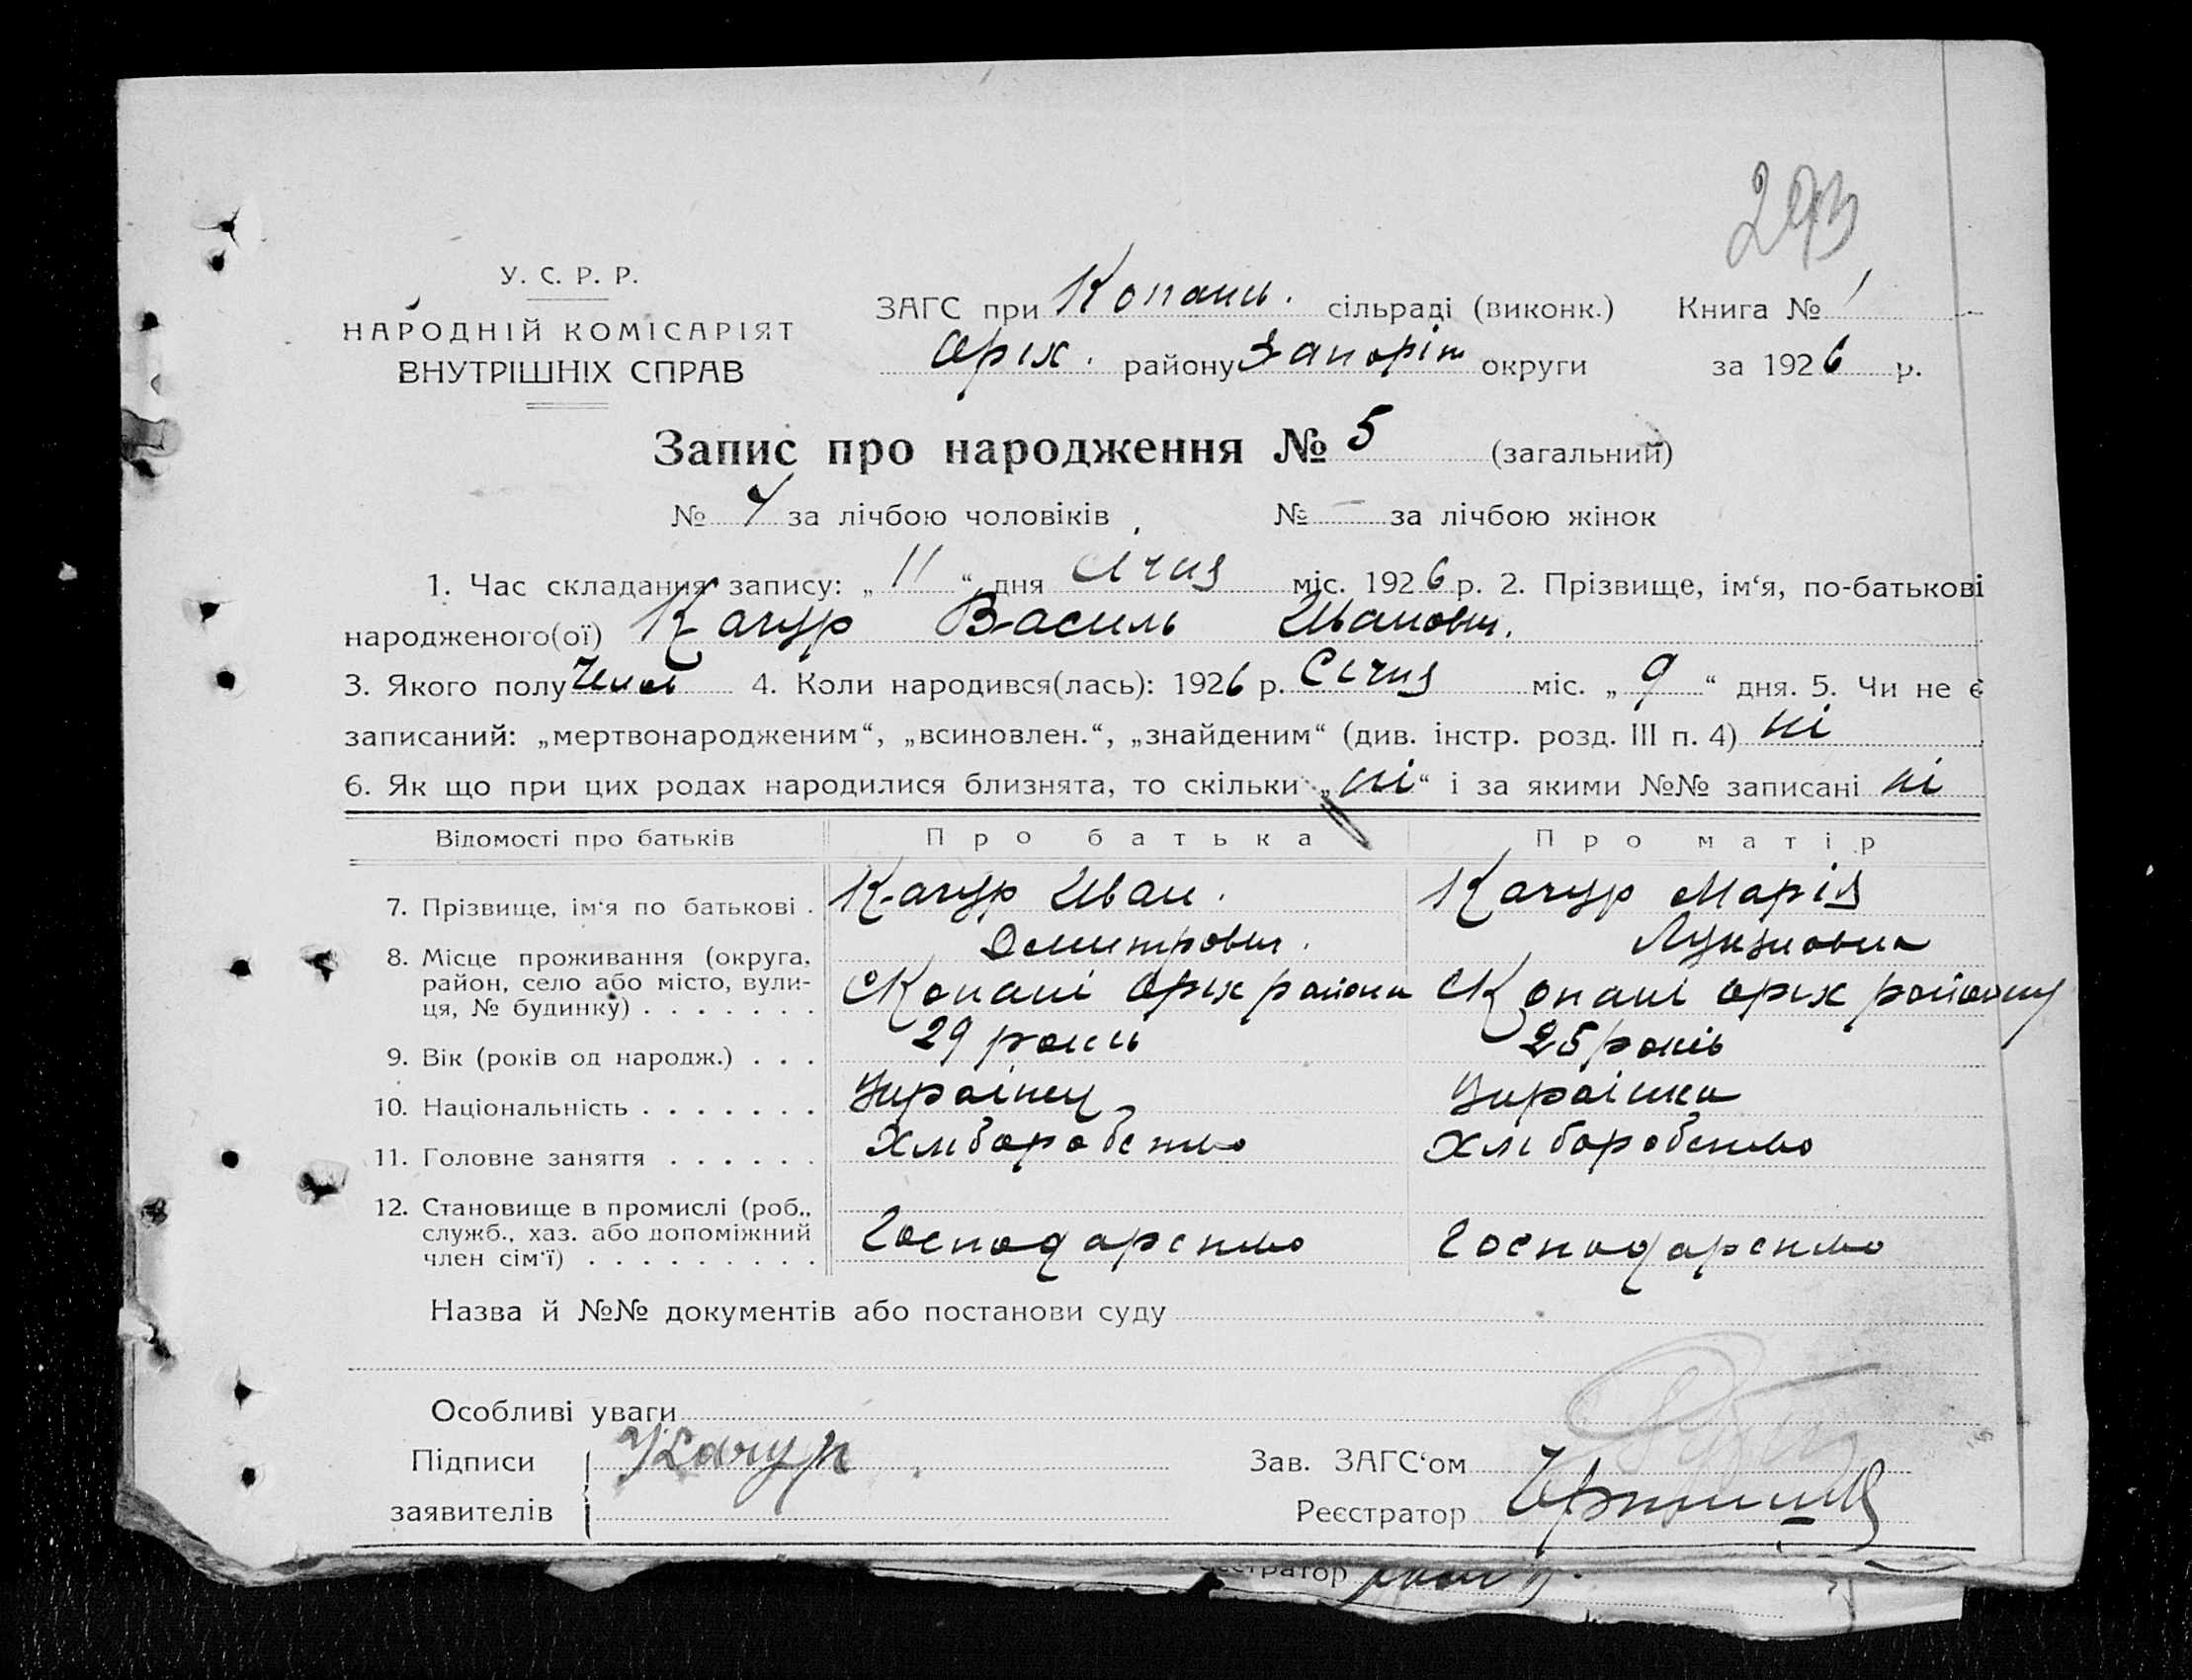 293
У. С. Р. Р.
НАРОДНІЙ КОМІСАРІЯТ
ВНУТРІШНІХ СПРАВ
ЗАГС при Копань. сільраді (виконк.) Книга № 1
Оріх. району Запоріж округи за 1926 р.
Запис про народження № 5 (загальний)
№ 4 за лічбою чоловіків № — за лічбою жінок
1. Час складання запису: „ 11 “ дня Січня міс. 1926 р. 2. Прізвище, ім‘я, по-батькові
народженого(ої) Качур Василь Иванович.
3. Якого полу 4. Коли народився(лась): 1926 р. Січня міс. „ 9 “ дня. 5. Чи не є
записаний: „мертвонародженим“, „всиновлен.“, „знайденим“ (див. інстр. розд. III п. 4) ні
6. Як що при цих родах народилися близнята, то скільки „ ні “ і за якими №№ записані ні
Відомості про батьків Про батька Про матір
7. Прізвище, ім‘я по батькові . Качур Иван . Качур Марія
Демитрович . Лукяновна
8. Місце проживання (округа, район, село або місто, вулиця, № будинку) . . . . . . . С Копані Оріх района С Копані Оріх району
9. Вік (років од народж.) . . . 29 років 25 років
10. Національність . . . . . . . Украінец Украінка
11. Головне заняття . . . . . . Хліборобство Хліборобство
12. Становище в промислі (роб., служб., хаз. або допоміжний член сім‘ї) . . . . . . . . . Господарство Господарство
Назва й №№ документів або постанови суду
Особливі уваги
Підписи
заявителів
Качур
Зав. ЗАГС‘ом
Реєстратор
Реєстратор